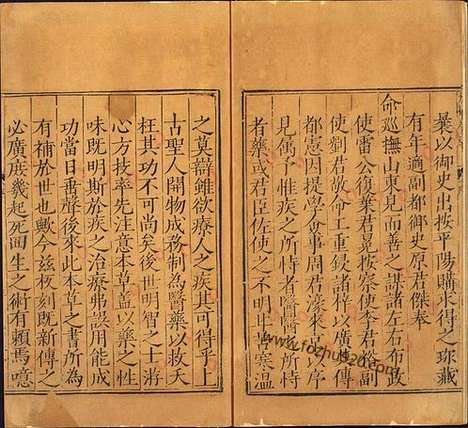 曩以御史出按平陽購求得之珍藏
有年適副都御史原君傑奉
命巡撫山東見而善之謀諸左右布政
使雷公復葉君冕按察使李君裕副
使劉君敔命工重錄諸梓以廣其傳
都憲因提學僉事周君濠求予序
見儁予惟疾之所恃醫也醫之所恃
者藥或君臣佐使之不明非惧寒溫
之莫辯雖欲療人之疾其可得乎上
古聖人開物成務制為醫藥以救夭
枉其功不可尚矣後世明智之士游
心方技率先注意本草蓋以藥之性
味既明斯於疾之治療弗誤用能成
功當日垂聲後來此本草之書所為
有補於世也歟今茲板刻既新傳之
必廣庶幾起死回生之術有賴焉噫
www.fozhu920.com